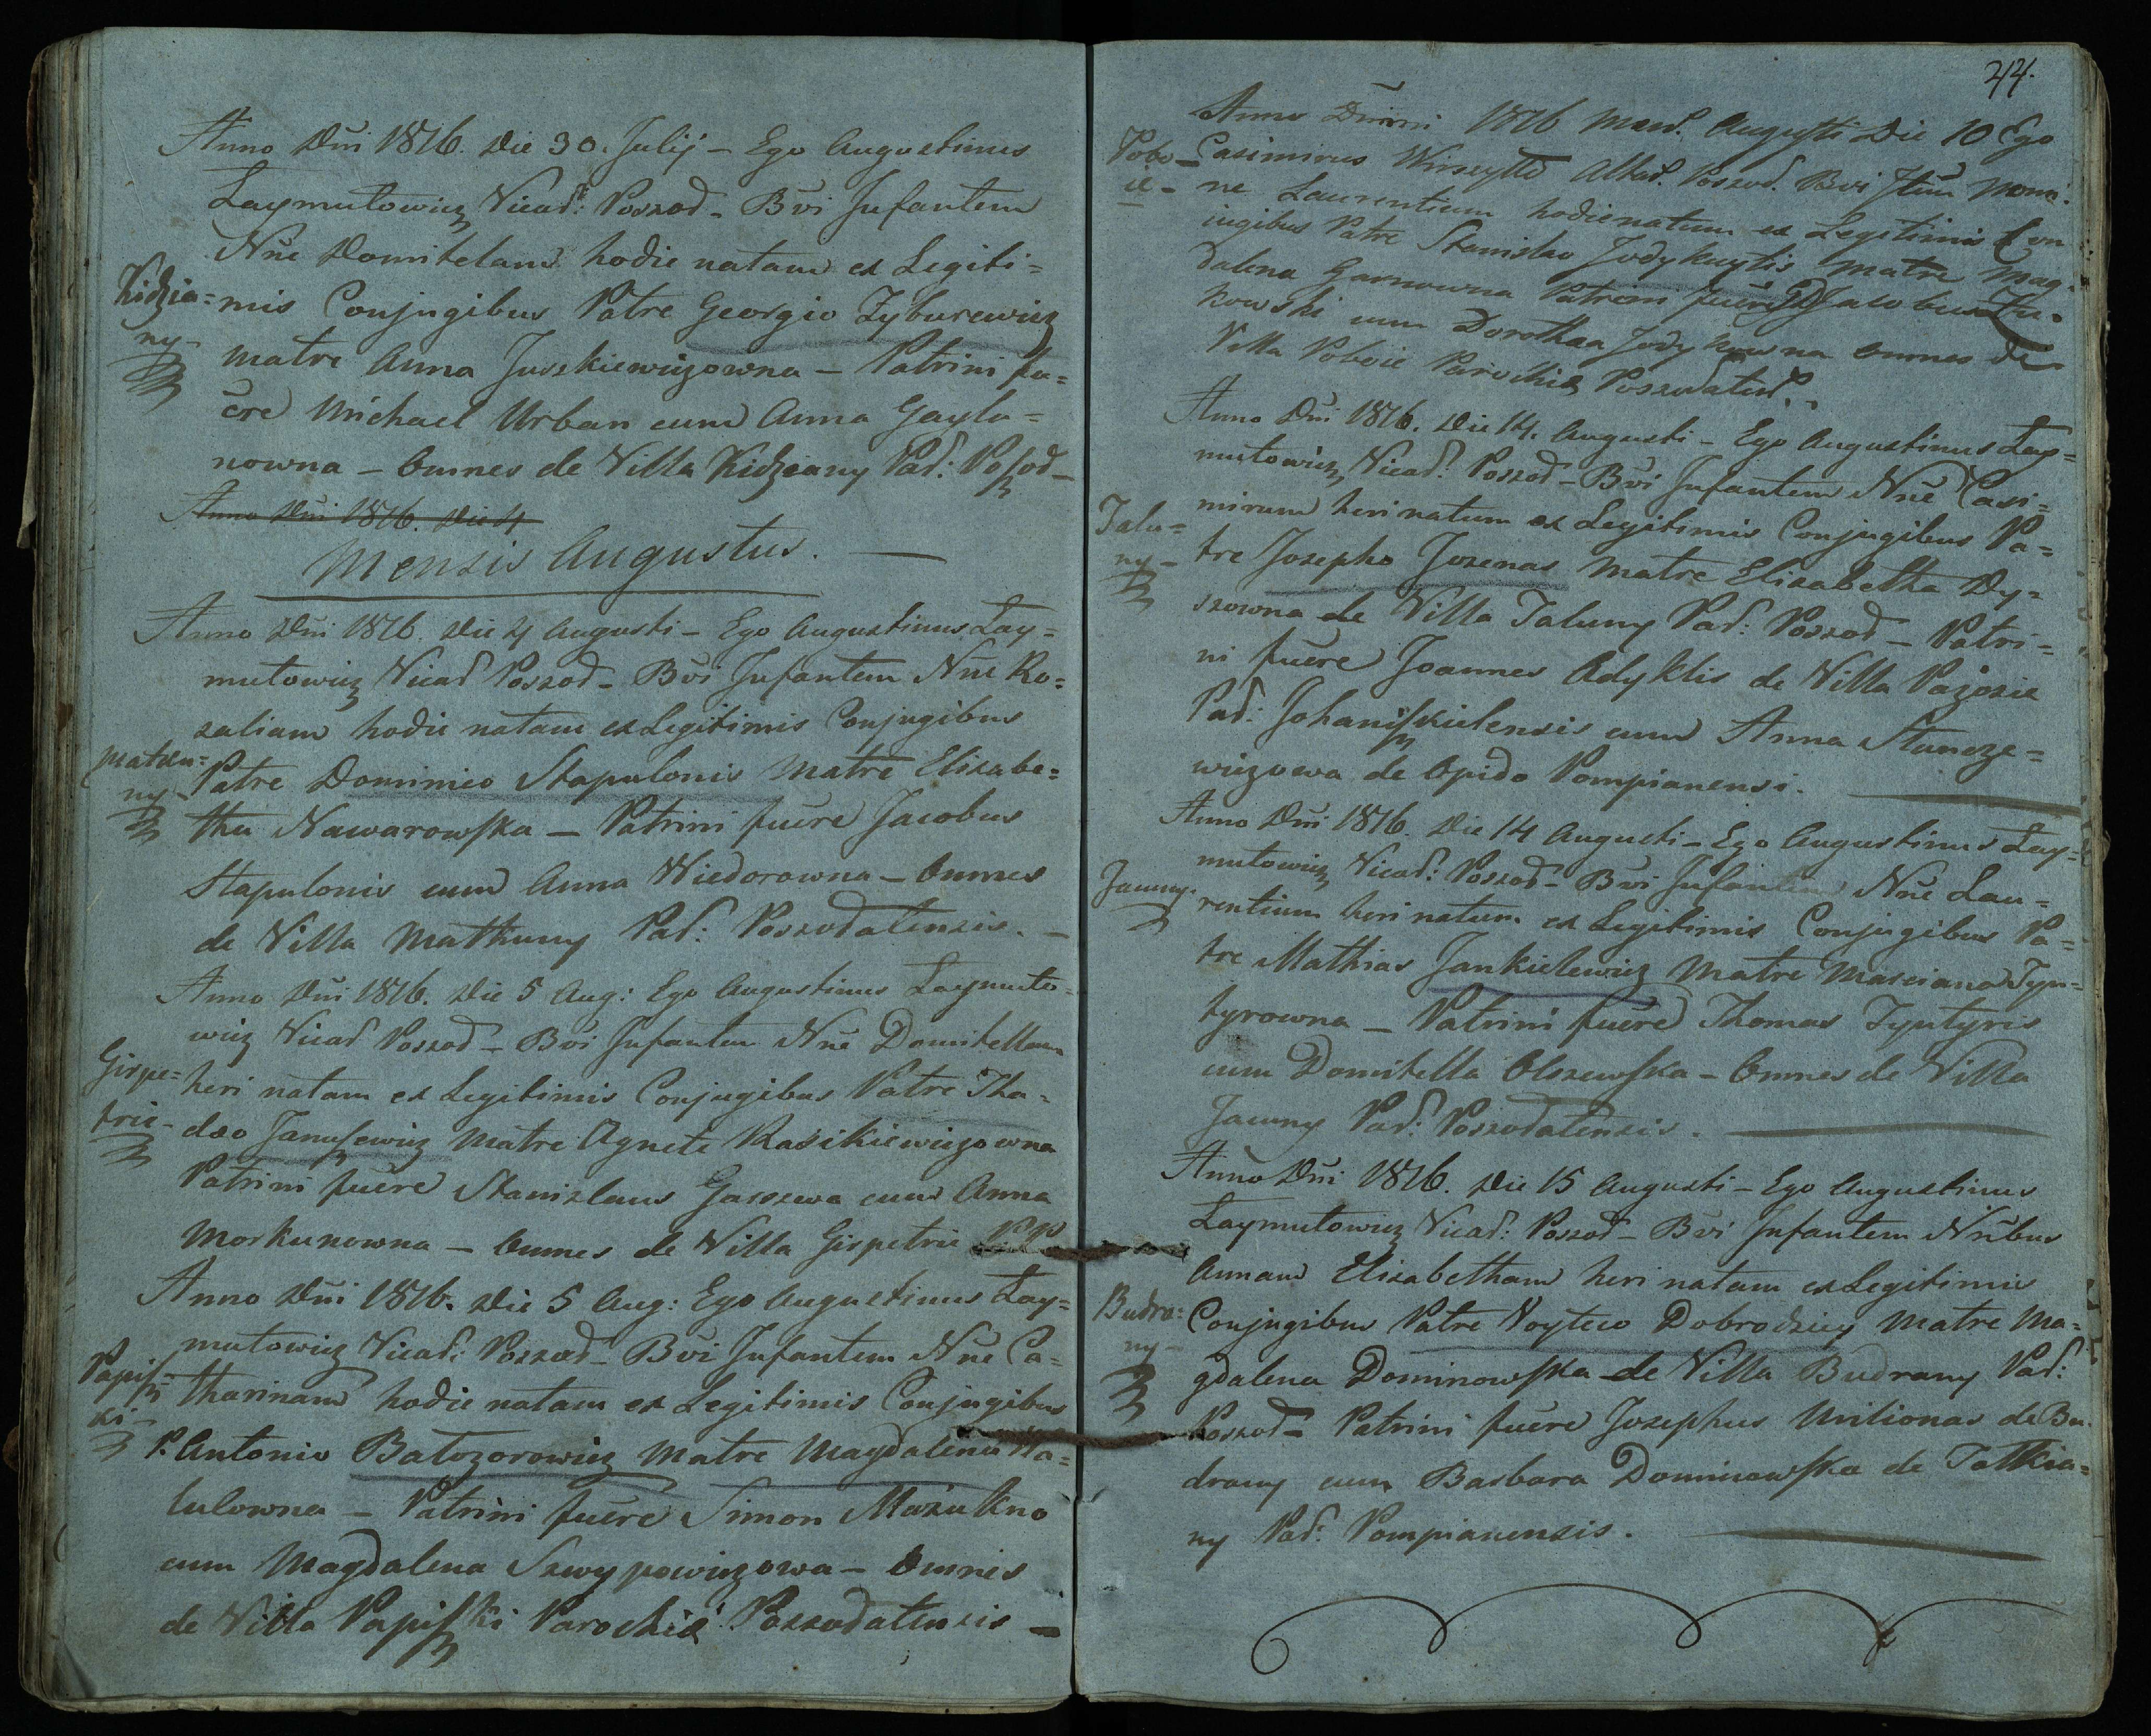 Anno Dni 1816. Die 30. Julij – Ego Augustinus
Laymutowicz Vicar: Poszod – Bvi Infantem
Nne Domitelam hodie natam ex Legiti=
Kidzia=
ny –
mis Conjugibus Patre Georgio Zyburewicz
Matre Anna Juszkiewiczowna – Patrini fu=
ere Michael Urban cum Anna Gaylu=
nowna – Omnes de Villa Kidziany Par: Poszod –
Anno Dni 1816. Die 4
Mensis Augustus. —
Anno Dni 1816. Die 4 Augusti – Ego Augustinus Lay=
mutowicz Vicar Poszod – Bvi Infantem Nne Ro=
zaliam hodie natam ex Legitimis Conjugibus
Matku=
ny –
Patre Dominico Stapulonis Matre Elizabe=
tha Nawarowska – Patrini fuere Jacobus
Stapulonis cum Anna Wiedorowna – Omnes
de Villa Mathuny Par: Poszodatensis. –
Anno Dni 1816. Die 5 Aug: Ego Augustinus Laymuto=
wicz Vicar Poszod – Bvi Infantem Nne Domitellam
Girpe=
trie –
heri natam ex Legitimis Conjugibus Patre Tha=
dæo Janusewicz Matre Agnete Rasikiewiczowna
Patrini fuere Stanislaus Gasszewa cum Anna
Morkunowna – Omnes de Villa Girpetrie PP
Anno Dni 1816. Die 5 Aug: Ego Augustinus Lay=
mutowicz Vicar: Poszod – Bvi Infantem Nne Ca=
Papisz=
ki –
tharinam hodie natam ex Legitimis Conjugibus
P. Antonio Batozorowicz Matre Magdalena
lulowna – Patrini fuere Simon Mażukno
cum Magdalena Szwypowiczowa – Omnes
de Villa Papiszki Parochiæ Poszodatensis –
44.
Anno Dnini 1816 Mens. Augusti Die 10 Ego
Pobo –
ie –
Casimirus Wirszyłło Altar. Poszod. Bvi Iftum Nomi:
ne Laurentium hodie natum ex Legitimis Con
iugibus Patre Stanislao Jodykaytis Matre Mag=
dalena Garnowna Patrini fuere Jacobus
kowski cum Dorothea Jodykowna omnes de
Villa Poboie Parochiæ Poszodaten.
Anno Dni 1816. Die 14. Augusti – Ego Augustinus Lay=
mutowicz Vicar: Poszod – Bvi Infantem Nne Casi=
mirum heri natum ex Legitimis Conjugibus Pa=
Talu=
ny –
tre Josepho Jozenas Matre Elizabetha Dy=
szowna de Villa Taluny Par: Poszod – Patri=
ni fuere Joannes Adyklis de Villa Pażosie
Par: Johaniszkielensis cum Anna Stancze=
wiczowa de Opido Pompianensi.
Anno Dni 1816. Die 14 Augusti – Ego Augustinus Lay=
mutowicz Vicar: Poszod – Bvi Infantem Nne Lau=
Jauny.
rentium heri natum ex Legitimis Conjugibus Pa=
tre Mathias Jankielewicz Matre Marciana Typ=
tyrowna – Patrini fuere Thomas Typtyris
cum Domitella Olszewska – Omnes de Villa
Jauny Par: Poszodatensis.
Anno Dni 1816. Die 15 Augusti – Ego Augustinus
Laymutowicz Vicar: Poszod – Bvi Infantem Nnbus
Annam Elizabetham heri natam ex Legitimis
Budra=
ny –
Conjugibus Patre Woyteco Dobrodziey Matre Ma=
gdalena Dominowska de Villa Budrany Par:
Poszod – Patrini fuere Josephus Milionas de Bu=
drany cum Barbara Dominowska de Tatkia=
ny Par: Pompianensis.